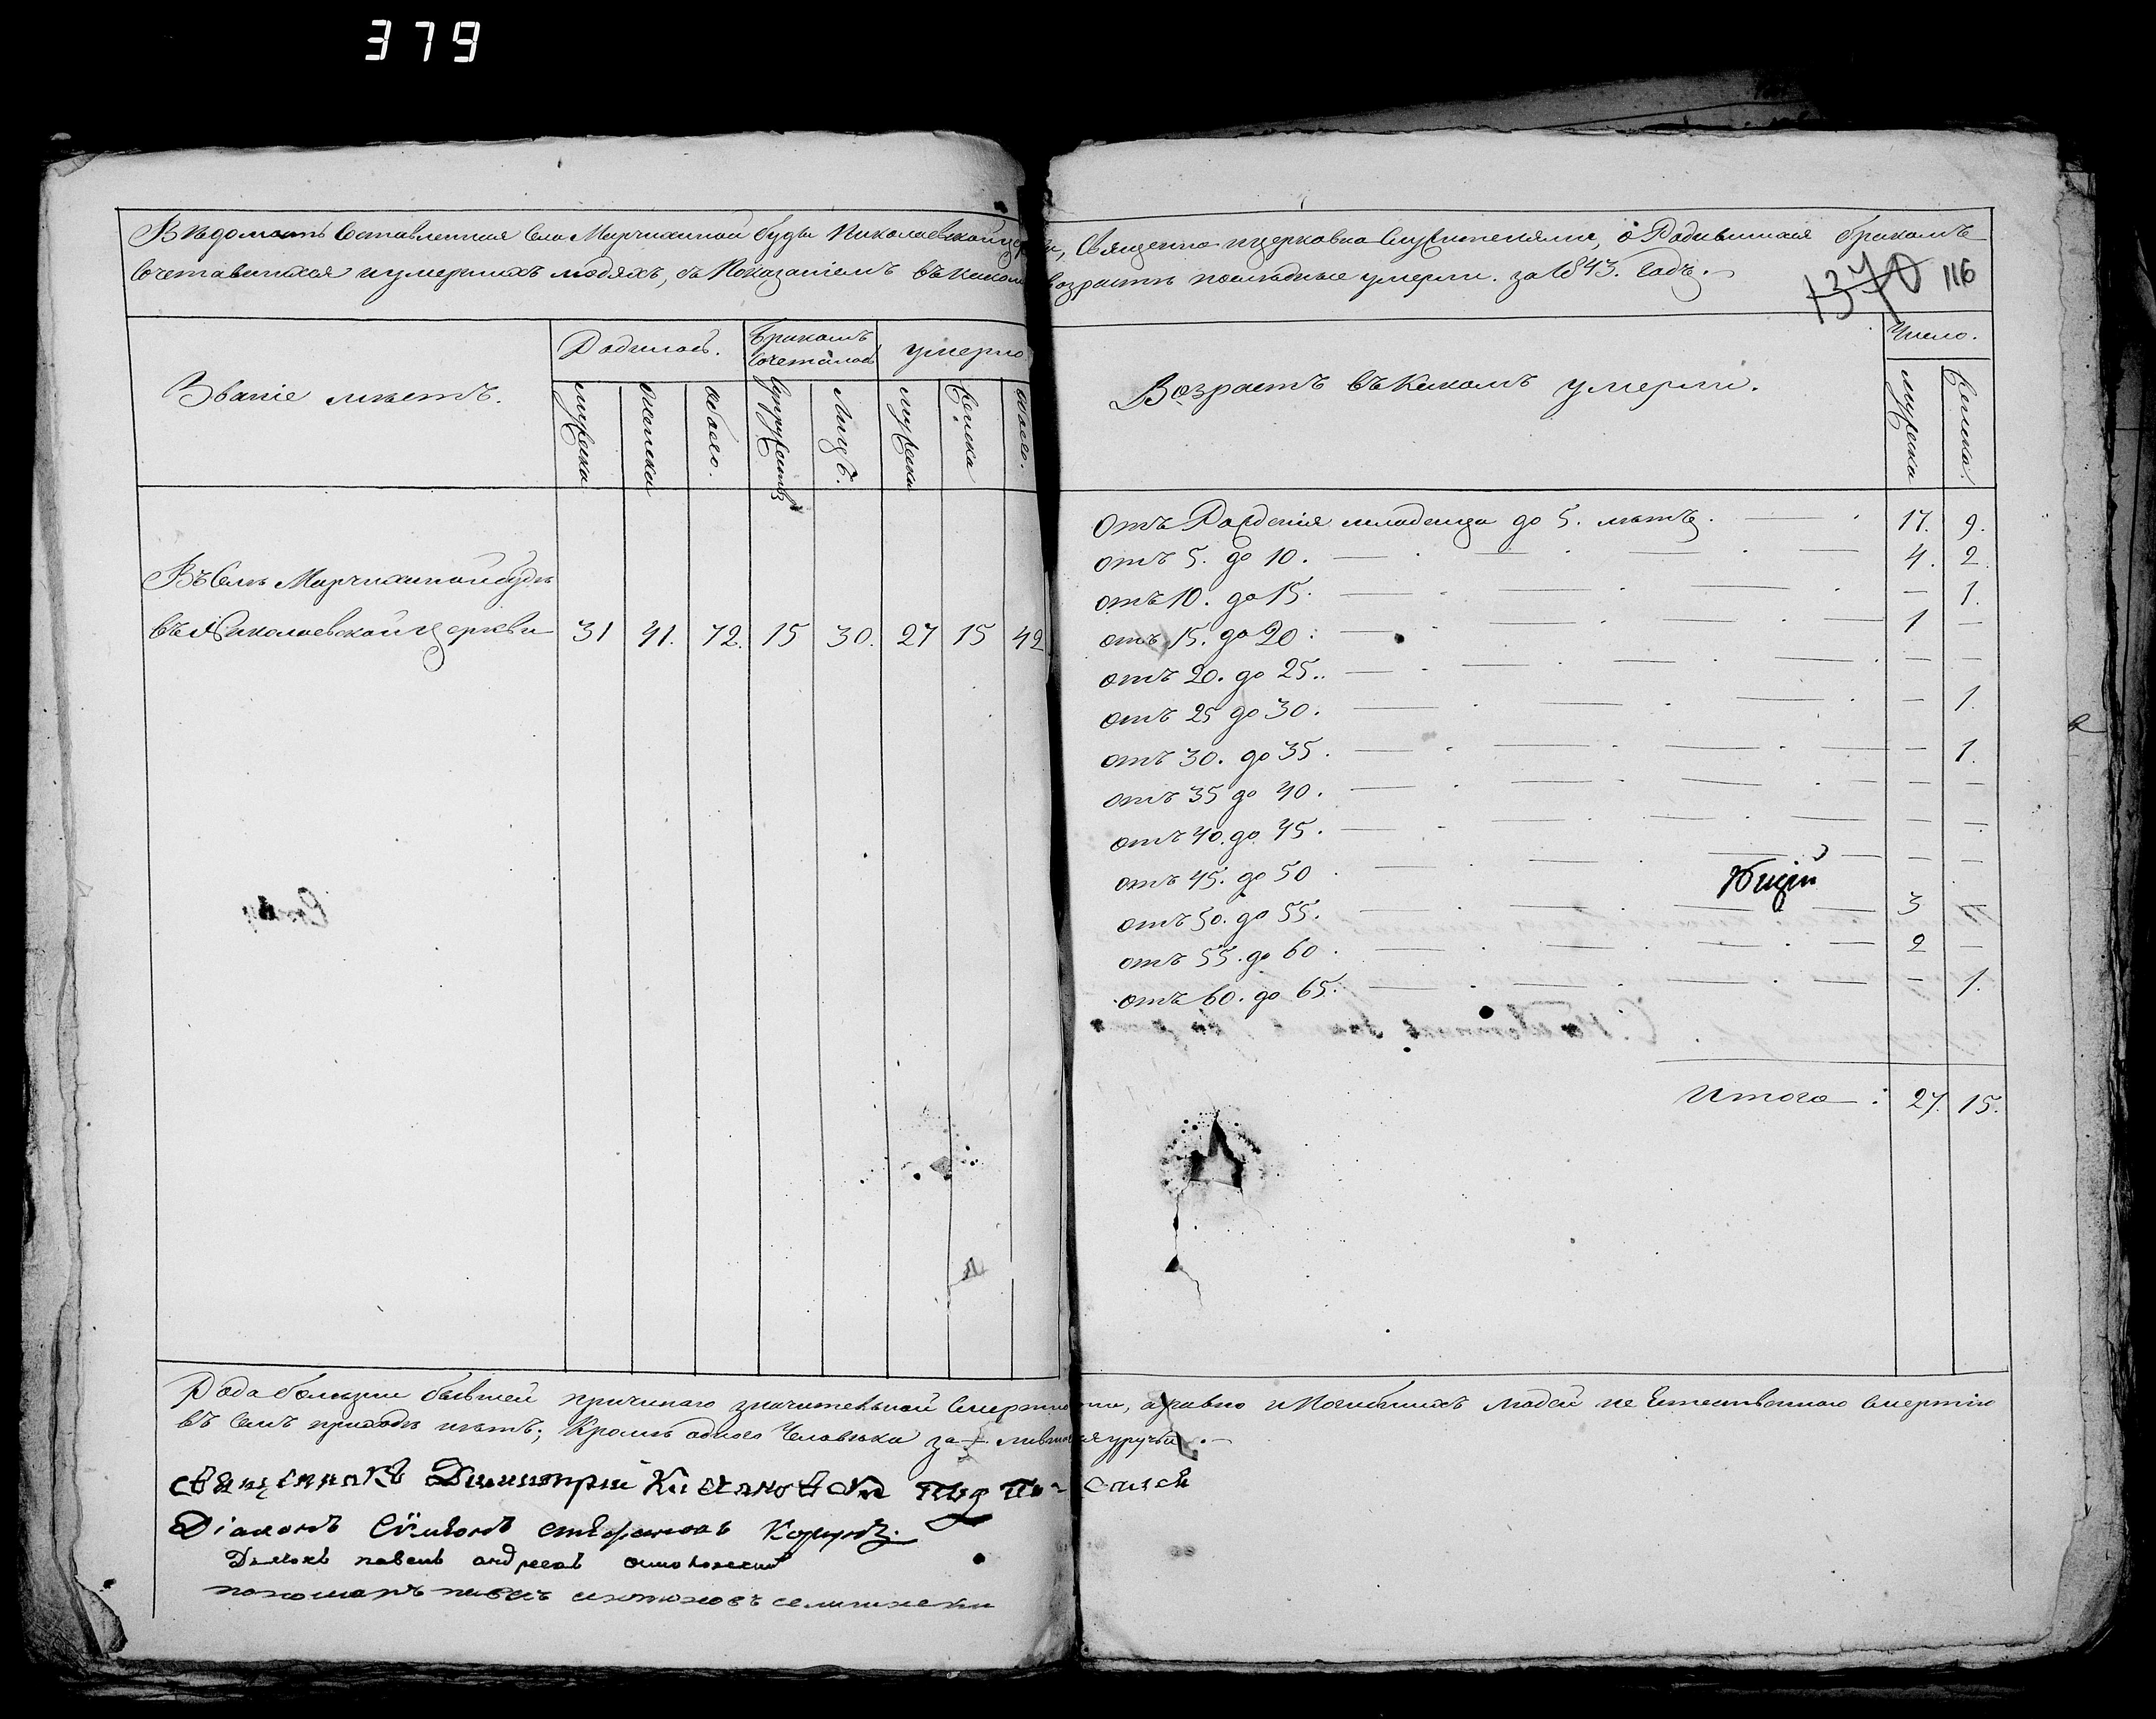 379
Вѣдомость Составленная Села Марчихиной буды Николаевской церкви, Священно и церковно Служителями, о Родившихся бракомъ
Сочетавшихся и умершихъ людяхъ, съ Показаніемъ въ какомъ возрастѣ послѣдные умерли. за 1843. Годъ.
1370 116
Званіе мѣстъ.
Родилось. Бракомъ сочеталось умерло
мужеска женска обоего. супружествъ Лицъ. мужеска женска обоего.
Въ Селѣ Марчихиной будѣ
въ Николаевской церкви 31 41. 72. 15 30. 27 15 42
Возрастъ въ Какомъ умерли. Число.
мужеска женска.
Отъ Рожденія младенца до 5. лѣтъ. 17. 9.
отъ 5. до 10. 4. 2.
отъ 10. до 15. — 1.
отъ 15. до 20. 1 —
отъ 20. до 25. — —
отъ 25 до 30. — 1.
отъ 30. до 35. — 1.
отъ 35 до 40. — —
отъ 40. до 45. — —
отъ 45. до 50 — —
отъ 50. до 55. 3 —
отъ 55. до 60. 2 —
отъ 60. до 65. — 1.
Итого: 27. 15.
Рода болѣзни бывшей причиною значительной Смертности, а равно и Погибшихъ людей не Естественною Смертію
въ семъ приходѣ нѣтъ; Кромѣ одного Человѣка
Священникъ Димитрій Подписался
Діаконъ Сѵмеонъ Стефановъ
Дьячокъ павелъ андреевъ
пономарь павелъ